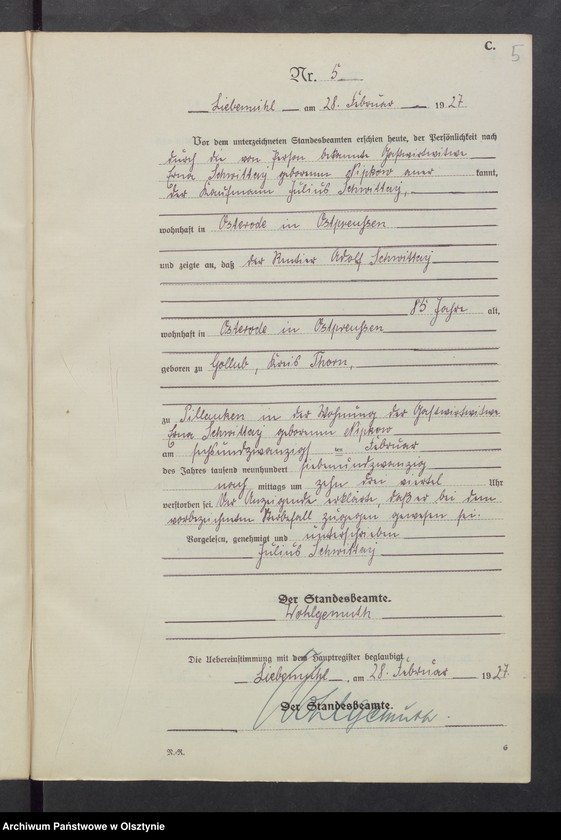 C.
5
Nr. 5
Liebemühl am 28. Februar 1927
Vor dem unterzeichneten Standesbeamten erschien heute, der Persönlichkeit nach
durch die von Person bekannte Gastwirtwitwe
Erna Schwittay geborenen Nipkow aner kannt,
der Kaufmann Julius Schwittay,
wohnhaft in Osterode in Ostpreussen
und zeigte an, daß der Rentier Adolf Schwittay
85 Jahre alt,
wohnhaft in Osterode in Ostpreussen
geboren zu Gollub, Kreis Thorn,
zu Pillauken in der Wohnung der Gastwirtwitwe
Erna Schwittay geborenen Nipkow
am sechsundzwanzigsten Februar
des Jahres tausend neunhundert siebenundzwanzig
nach mittags um zehn drei viertel Uhr
verstorben sei. Der Anzeigende erklärte, daß er bei dem
vorbezeichneten Sterbefall zugegen gewesen sei.
Vorgelesen, genehmigt und unterschrieben
Julius Schwittay
Der Standesbeamte.
Wohlgemuth
Die Uebereinstimmung mit dem Hauptregister beglaubigt
Liebemühl, am 28. Februar 1927.
Der Standesbeamte.
Wohlgemuth.
R.-R.
6
Archiwum Państwowe w Olsztynie